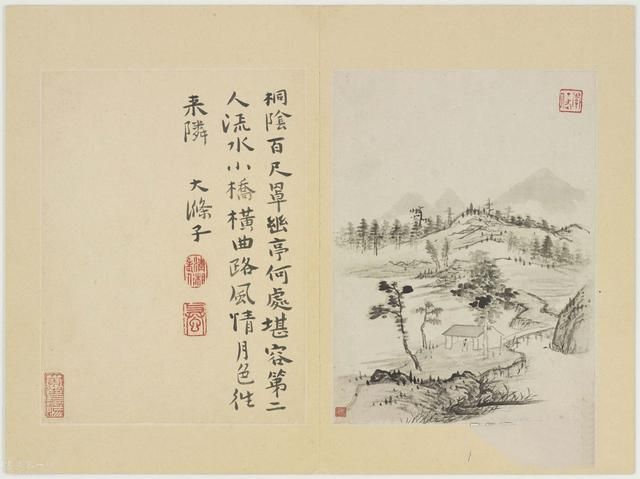 桐陰百尺罩幽亭何處堪容第二
人流水小橋橫曲路風情月色往
来隣 大滌子